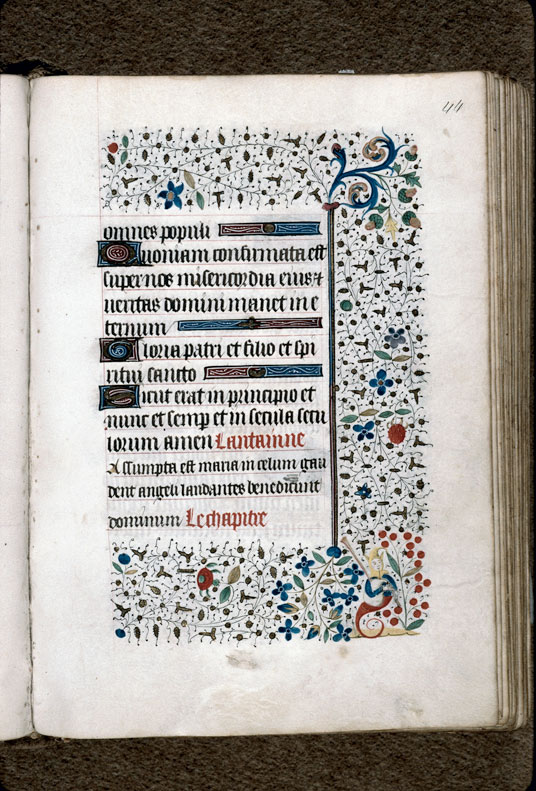 44
omnes populi
Quoniam confirmata est
super nos misericordia eius et
ueritas domini manet in e
ternum
Gloria patri et filio et spi
ritui sancto
Sicut erat in principio et
nunc et semp et in secula secu
lorum amen Lantainne
Assumpta est maria in celum gau
dent angeli laudantes benedicunt
dominum Le chapitre